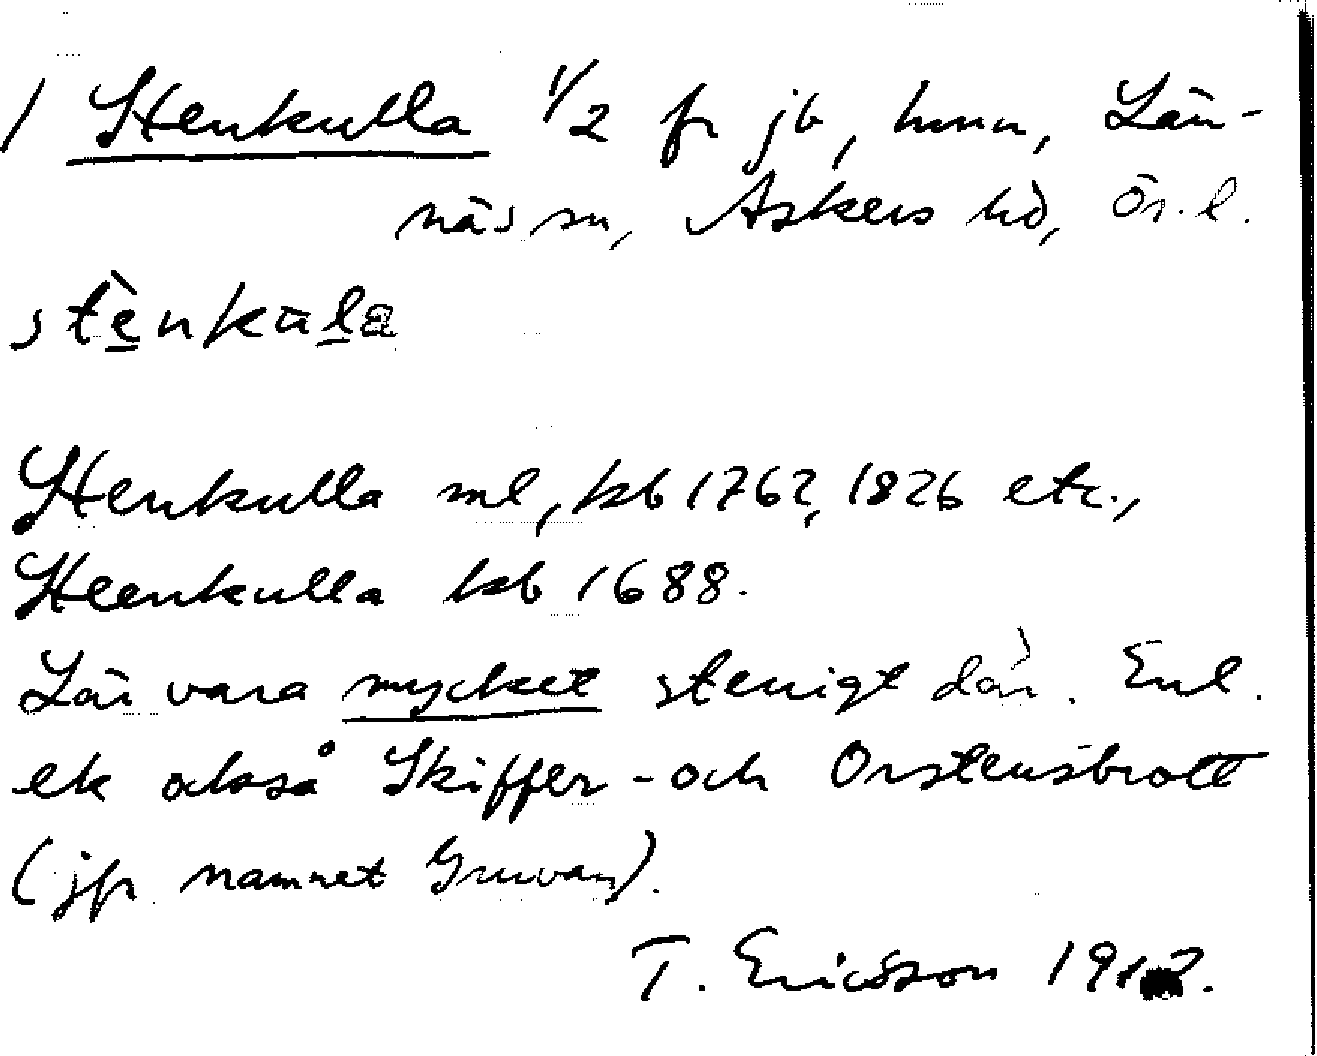 / Stenkulla 1/2 fr jb, hmn, Län-
näs sn, Askers hd, Ör. l.
stènkula
Stenkulla ml, kb 1762, 1826 etc.,
Steenkulla kb 1688.
Lär vara mycket stenigt där. Enl.
ek också Skiffer- och Orstensbrott
(jfr namnet Gruvan).
T. Ericsson 191